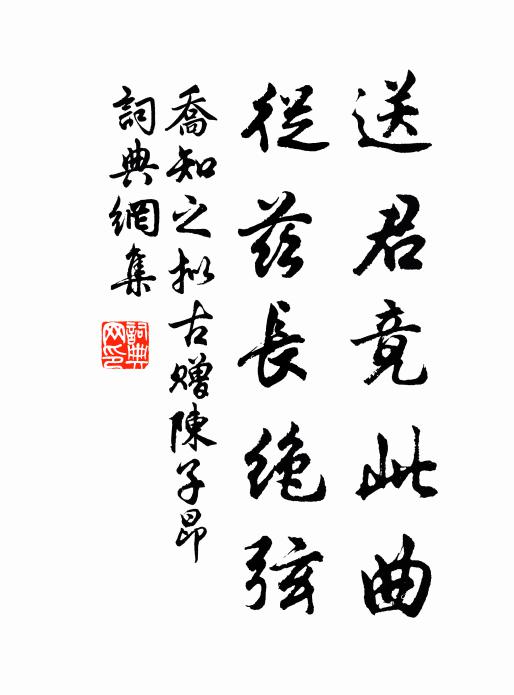 送君竟此曲
從茲長絶弦
喬知之拟古贈陳子昂
詞典網集
詞典网印